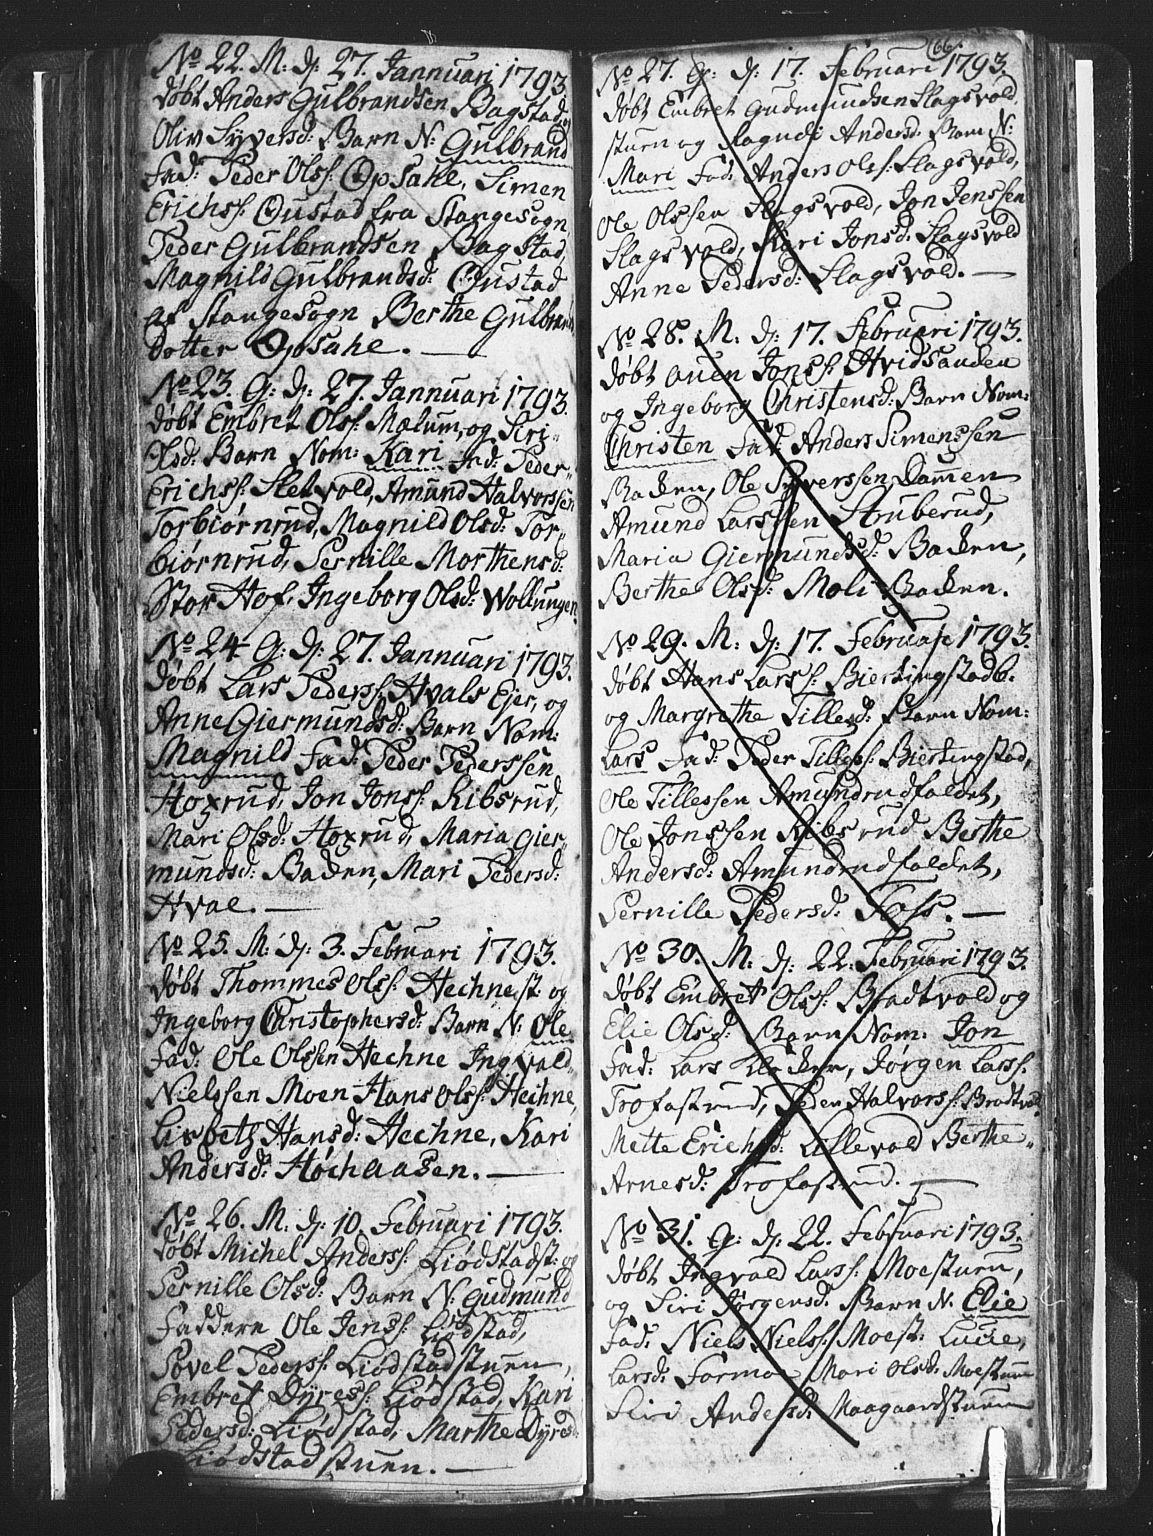 No 22. M: d: 27. Jannuari 1793.
døbt Anders Gulbrandsen Bagstad og
Oliv Syversd: Barn N: Gulbrand
Fad: Peder Olss: Opsahl, Simen
Erichss: Gustad fra Stangesogn
Peder Gulbrandsen Bagstad,
Magnild Gulbrandsd: Gustad
af Stangesogn Berthe Gulbrands
Dotter Opsahl. —
No 23. G: d: 27. Jannuari 1793.
døbt Embret Olss: Mælum, og Siri
Olsd: Barn Nom: Kari Fad: Peder
Erichss: Sletvold, Amund Halvorssen
Torbiørnrud, Magnild Olsd: Tor-
biørnrud, Pernille Morthensd:
Stor Hof, Ingeborg Olsd: Wollungen.
No 24 G: d: 27. Jannuari 1793.
døbt Lars Pederss: Hvals Ejer, og
Anne Giermundsd: Barn Nom:
Magnild Fad: Peder Pederssen
Hoxrud, Jon Jonss: Ribsrud,
Mari Olsd: Hoxrud, Maria Gier-
mundsd: Baden, Mari Pedersd:
Hval. —
No 25. M: d: 3. Februari 1793.
døbt Thommes Olss: Hechnest: og
Ingeborg Christophersd: Barn N: Ole
Fad: Ole Olssen Hechne Ingvald
Nielssen Moen Hans Olss: Hechne,
Lisbeth Hansd: Hechne, Kari
Andersd: Høchaasen. —
No 26. M. d: 10. Februari 1793.
døbt Michel Anderss: Liødstadst: og
Pernille Olsd: Barn N: Gudmund
Faddere Ole Jenss: Liødstad,
Povel Pederss: Liødstadstuen,
Embret Dyress: Liødstad, Kari
Pedersd: Liødstad, Marthe Dyresd:
Liødstadstuen. —
66.
No 27. G: d: 17. Februari 1793.
døbt Embret Gudmundsen Slagsvold
stuen og Ragndi Andersd: Barn N:
Mari Fad: Anders Olss: Slagsvold,
Ole Olssen Slagsvold, Jon Jenssen
Slagsvold, Kari Jonsd: Slagsvold
Anne Pedersd: Slagsvold. —
No 28. M. d: 17. Februari 1793.
døbt Auen Jonss: Hvidsanden
og Ingeborg Christensd: Barn Nom:
Christen Fad: Anders Simenssen
Baden, Ole Syverssen Dammen
Amund Larssen Struberud,
Maria Giermundsd: Baden,
Berthe Olsd: Moli Baden.
No 29. M. d: 17. Februari 1793.
døbt Hans Larss: Biertingstadb.
og Margrethe Tillesd: Barn Nom:
Lars Fad: Peder Tilless: Biertingstad,
Ole Tillessen Amundrudfaldet,
Ole Jonssen Ribsrud Berthe
Andersd: Amundrudfaldet,
Pernille Pedersd: Foss. —
No 30. M. d: 22. Februari 1793.
døbt Embret Olss: Bradtvold og
Elie Olsd: Barn Nom: Jon
Fad: Lars, Jørgen Larss:
Trofastrud, Peder Halvorss: Bradtvol
Mette Erichsd: Lillevold Berthe
Arnesd: Trofastrud. —
No 31. G: d: 22. Februari 1793.
døbt Ingvald Larss: Moestuen,
og Siri Jørgensd: Barn N. Elie
Fad: Niels Nielss: Moest: Lucie
Larsd: Formo Mari Olsd: Moestuen
Siri Andersd: Maagaardstuen